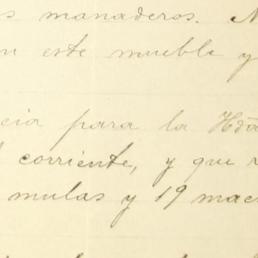 s manaderos.
este mueble y
cia para la Hda
corriente, y que
mulas y 19 mac